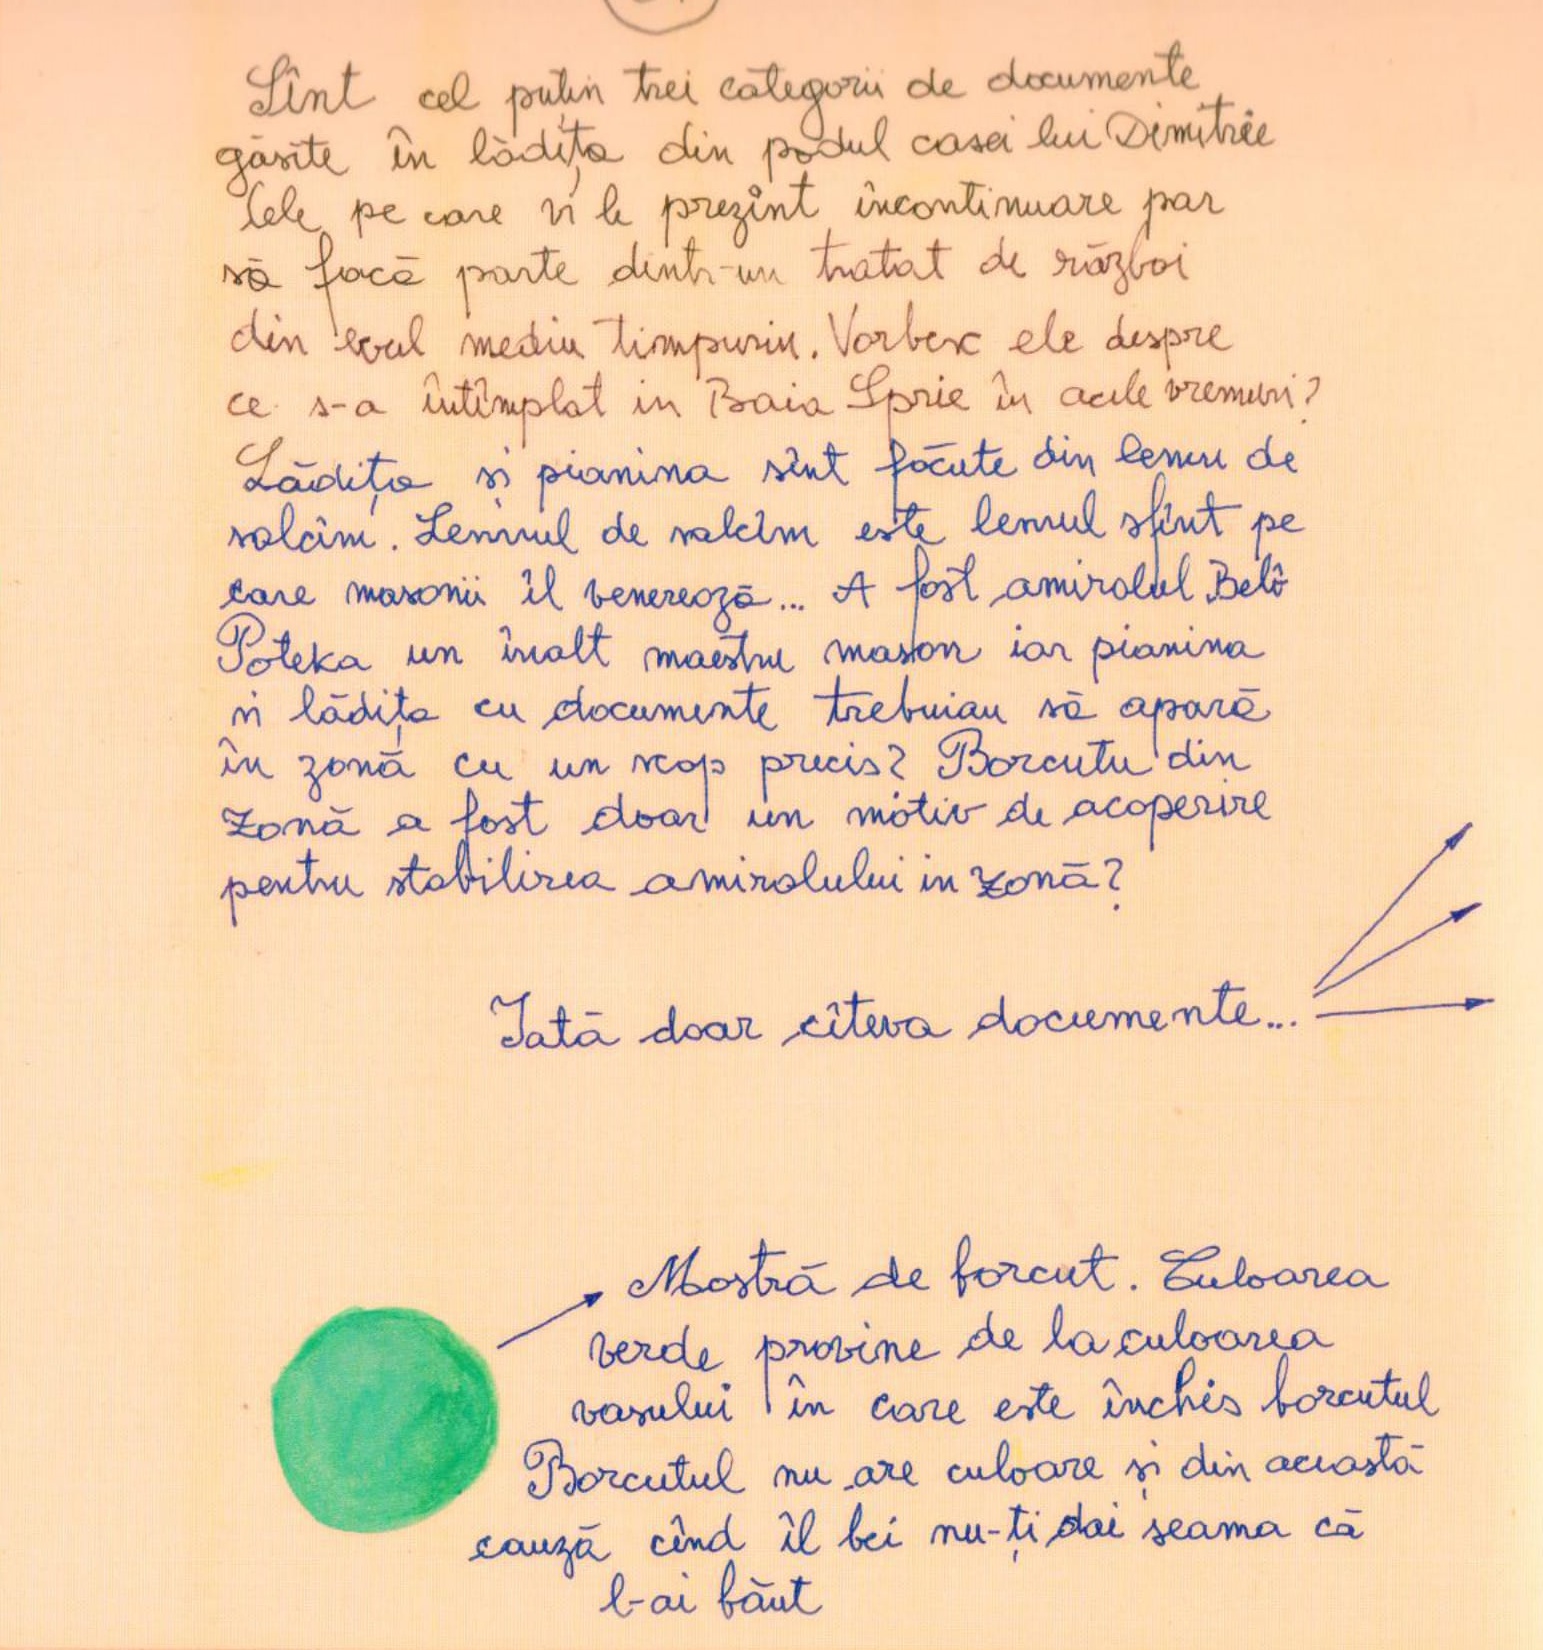 Sînt cel puțin trei categorii de documente
găsite în lădița din podul casei lui Dimitrie
Cele pe care vi le prezint încontinuare par
să facă parte dintr-un tratat de război
din evul mediu timpuriu. Vorbesc ele despre
ce s-a întîmplat in Baia Sprie în acele vremuri?
Lădița și pianina sînt făcute din lemn de
salcîm. Lemnul de salcîm este lemnul sfînt pe
care masonii îl venerează... A fost amiralul Belô
Poteka un înalt maestru mason iar pianina
și lădița cu documente trebuiau să apară
în zonă cu un scop precis? Borcutu din
zonă a fost doar un motiv de acoperire
pentru stabilirea amiralului in zonă?
Iată doar cîteva documente...
Mostră de borcut. Culoarea
verde provine de la culoarea
vasului în care este închis borcutul
Borcutul nu are culoare și din această
cauză cînd îl bei nu-ți dai seama că
l-ai băut